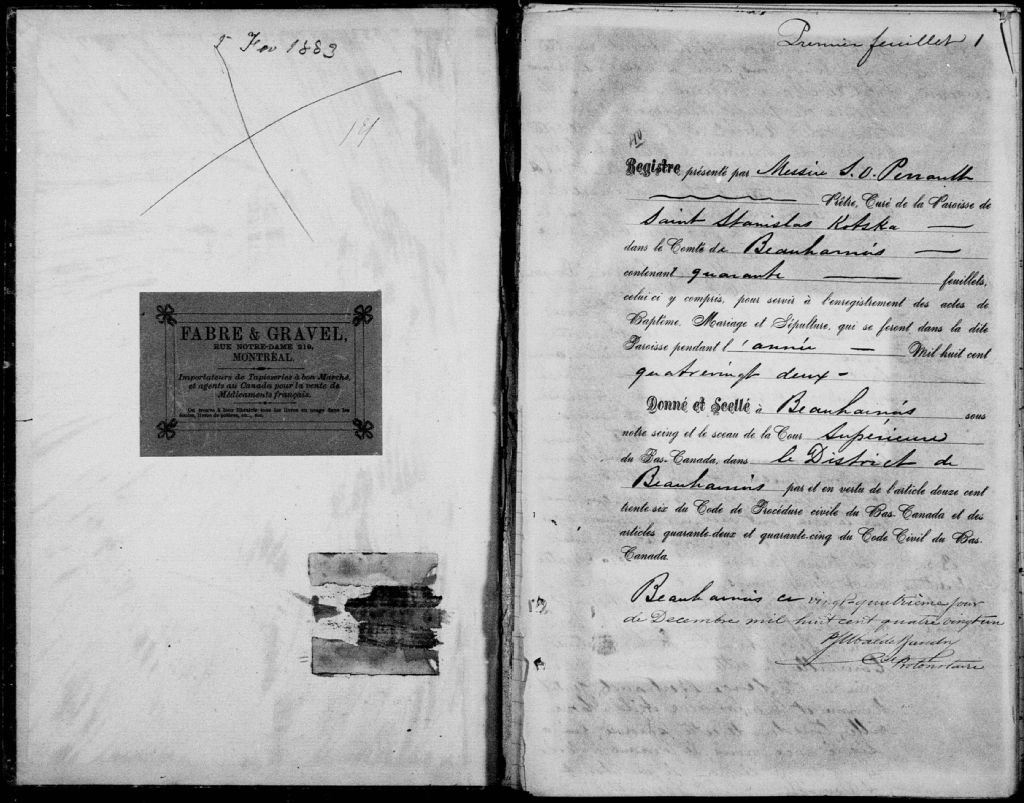 5 Fev 1883
FABRE & GRAVEL,
RUE NOTRE-DAME 219,
MONTRÉAL.
Importateurs de Tapisseries à bon Marché,
et agents au Canada pour la vente de
Médicaments français.
On trouve à leur librairie tous les livres en usage dans les
écoles, livres de prières, etc., etc.
Premier feuillet 1
Registre présenté par Messire S. O. Perrault
Prêtre, Curé de la Paroisse de
Saint Stanislas Kotska
dans le Comté de Beauharnois
contenant quarante feuillets,
celui ci y compris, pour servir à l'enregistrement des actes de
Baptême, Mariage et Sépulture, qui se feront dans la dite
Paroisse pendant l'année Mil huit cent
quatrevingt deux -
Donné et Scellé à Beauharnois sous
notre seing et le sceau de la Cour Supérieure
du Bas-Canada, dans le District de
Beauharnois par et en vertu de l'article douze cent
trente-six du Code de Procédure civile du Bas-Canada et des
articles quarante-deux et quarante-cinq du Code Civil du Bas-
Canada.
Beauharnois ce vingt-quatrième jour
de Decembre mil huit cent quatre vingt un
Protonotaire